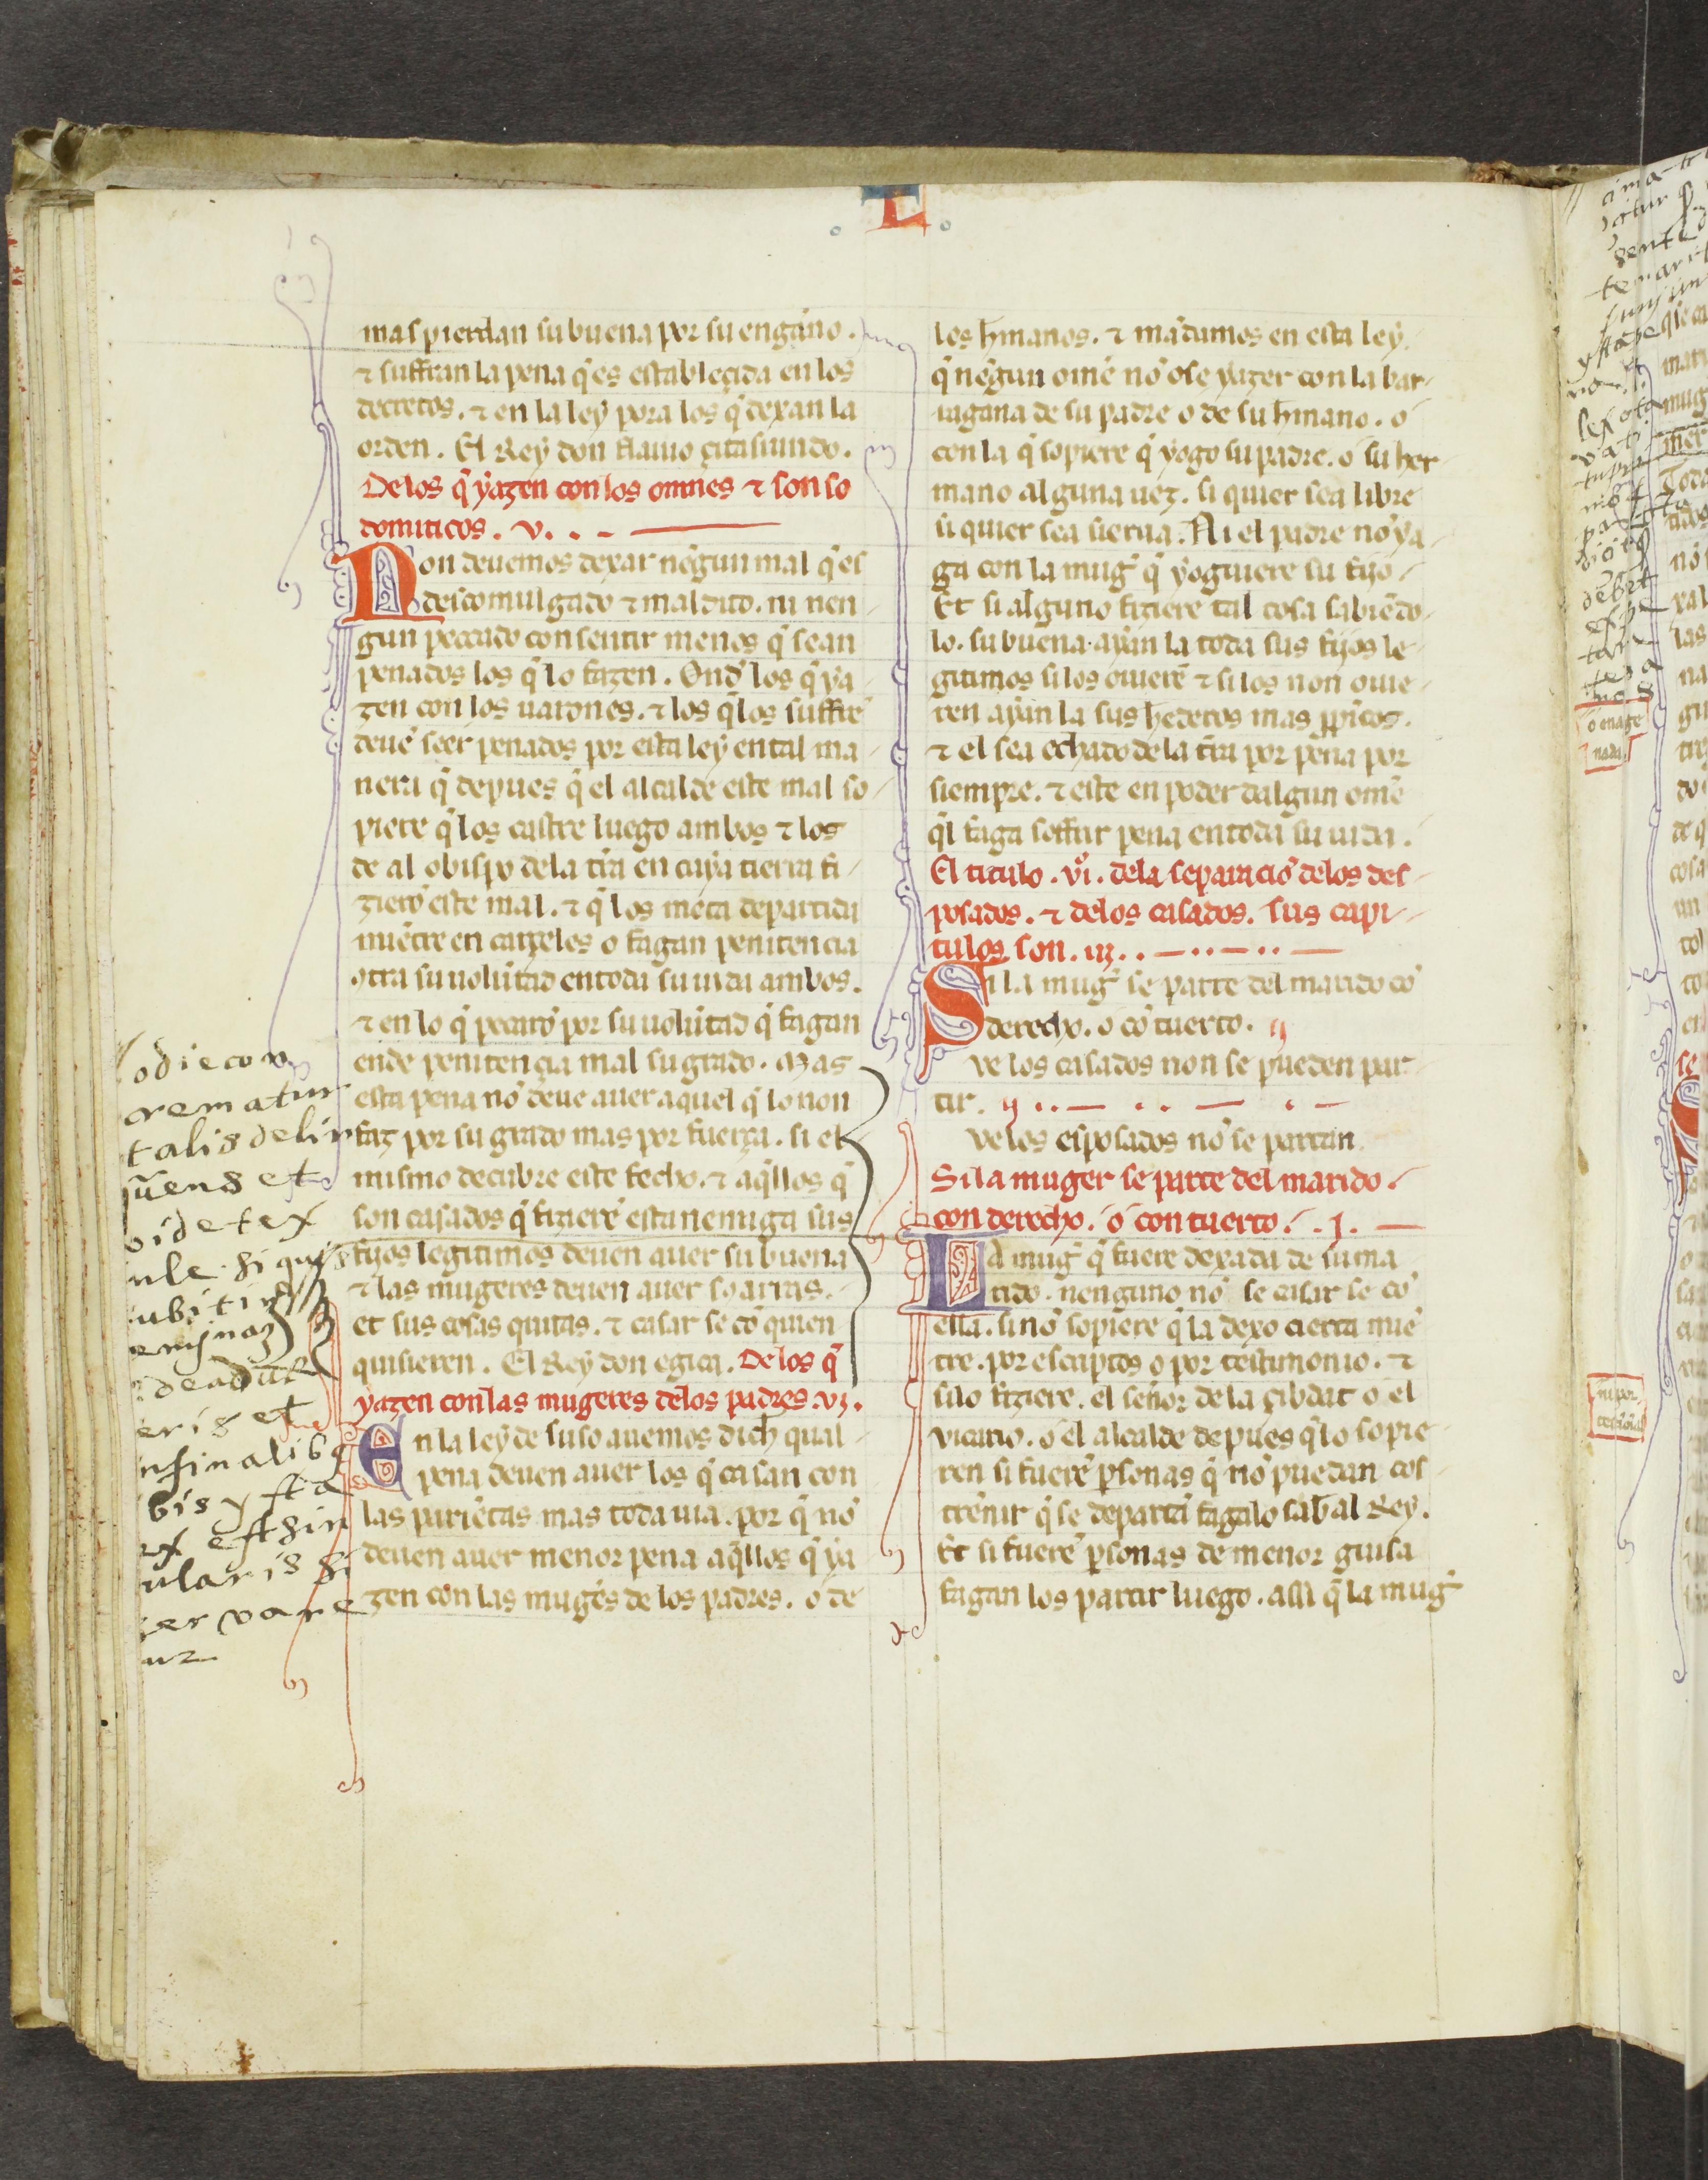 L
mas pierdan su buena por su engãno.
⁊ suffran la pena q̃ es estableçida en los
decretos. ⁊ en la ley pora los q̃ dexan la
orden. El Rey don flauio çitasiundo.
De los q̃ yazen con los omnes ⁊ son so
domiticos. v.
Non deuemos dexar nẽgun mal q̃ es
descomulgado ⁊ maldito. ni nen
gun peccado consentir menos q̃ sean
penados los q̃ lo fazen. Ond̃ los q̃ ya
zen con los uarones. ⁊ los q̃ los suffrẽ
deuẽ seer penados por esta ley en tal ma
nera q̃ depues q̃ el alcalde este mal so
piere q̃ los castre luego ambos ⁊ los
de al obispo de la tr̃ra en cuya tierra fi
zierõ este mal. ⁊ q̃ los meta departida
miẽtre en carçeles o fagan penitencia
otra su uolũtad en toda su uida ambos.
⁊ en lo q̃ pecarõ por su uolũtad q̃ fagan
ende penitençia mal su grado. Mas
esta pena nõ deue auer aquel q̃ lo non
faz por su grado mas por fuerça. si el
mismo decubre este fecho. ⁊ aq̃llos q̃
son casados q̃ fizierẽ esta nemiga sus
fijos legitimos deuen auer su buena
⁊ las mugeres deuen auer so arras.
et sus cosas quitas. ⁊ casar se cõ quien
quisieren. El Rey don egica. De los q̃
yazen con las mugeres de los padres. vj.
En la ley de suso auemos dich qual
pena deuen auer los q̃ casan con
las pariẽtas mas toda uia. por q̃ nõ
deuen auer menor pena aq̃llos q̃ ya
zen con las mugẽs de los padres. o de
los hmanos. ⁊ mãdamos en esta ley.
q̃ nẽgun omẽ nõ ose yazer con la bar
ragana de su padre o de su hmano. o
con la q̃ sopiere q̃ yogo su padre. o su her
mano alguna uez. si quier sea libre
si quier sea sierua. Ni el padre nõ ya
ga con la mug̃ q̃ yoguiere su fijo.
Et si alguno fiziere tal cosa sabiẽdo
lo. su buena ayan la toda sus fijos le
gitimos si los ouierẽ ⁊ si los non ouie
ren ayan la sus hederos mas ꝓpĩcos.
⁊ el sea echado de la tr̃ra por pena por
siempre. ⁊ este en poder dalgun omẽ
q̃l faga soffrir pena en toda su uida.
El titulo. vi. de la separaciõ de los des
posados. ⁊ de los casados. Sus capi
tulos son. iij.
Si la mug̃ se parte del marido cõ
derecho. o cõ tuerto. ij
Ve los casados non se pueden par
tir. ij
Ve los esposados nõ se partan
Si la muger se parte del marido.
con derecho. o con tuerto. .j.
La mug̃ q̃ fuere dexada de su ma
rido. nenguno nõ se casar se cõ
ella. si nõ sopiere q̃ la dexo cierta miẽ
tre. por escriptos o por testimonio. ⁊
si lo fiziere. el señor de la çibdat o el
vicario. o el alcalde depues q̃ lo sopie
ren si fuerẽ p̱sonas q̃ nõ puedan cos
trenir q̃ se departã fagalo sab̃ al Rey.
Et si fuerẽ p̱sonas de menor guisa
fagan los partir luego. assi q̃ la mug̃
odie com
crematur
talis delin
quens et
videtex
ubi tir
deadur
eris et
nfinalibꝰ
bis y sta
ex est sin
ularis si
ervare
ur